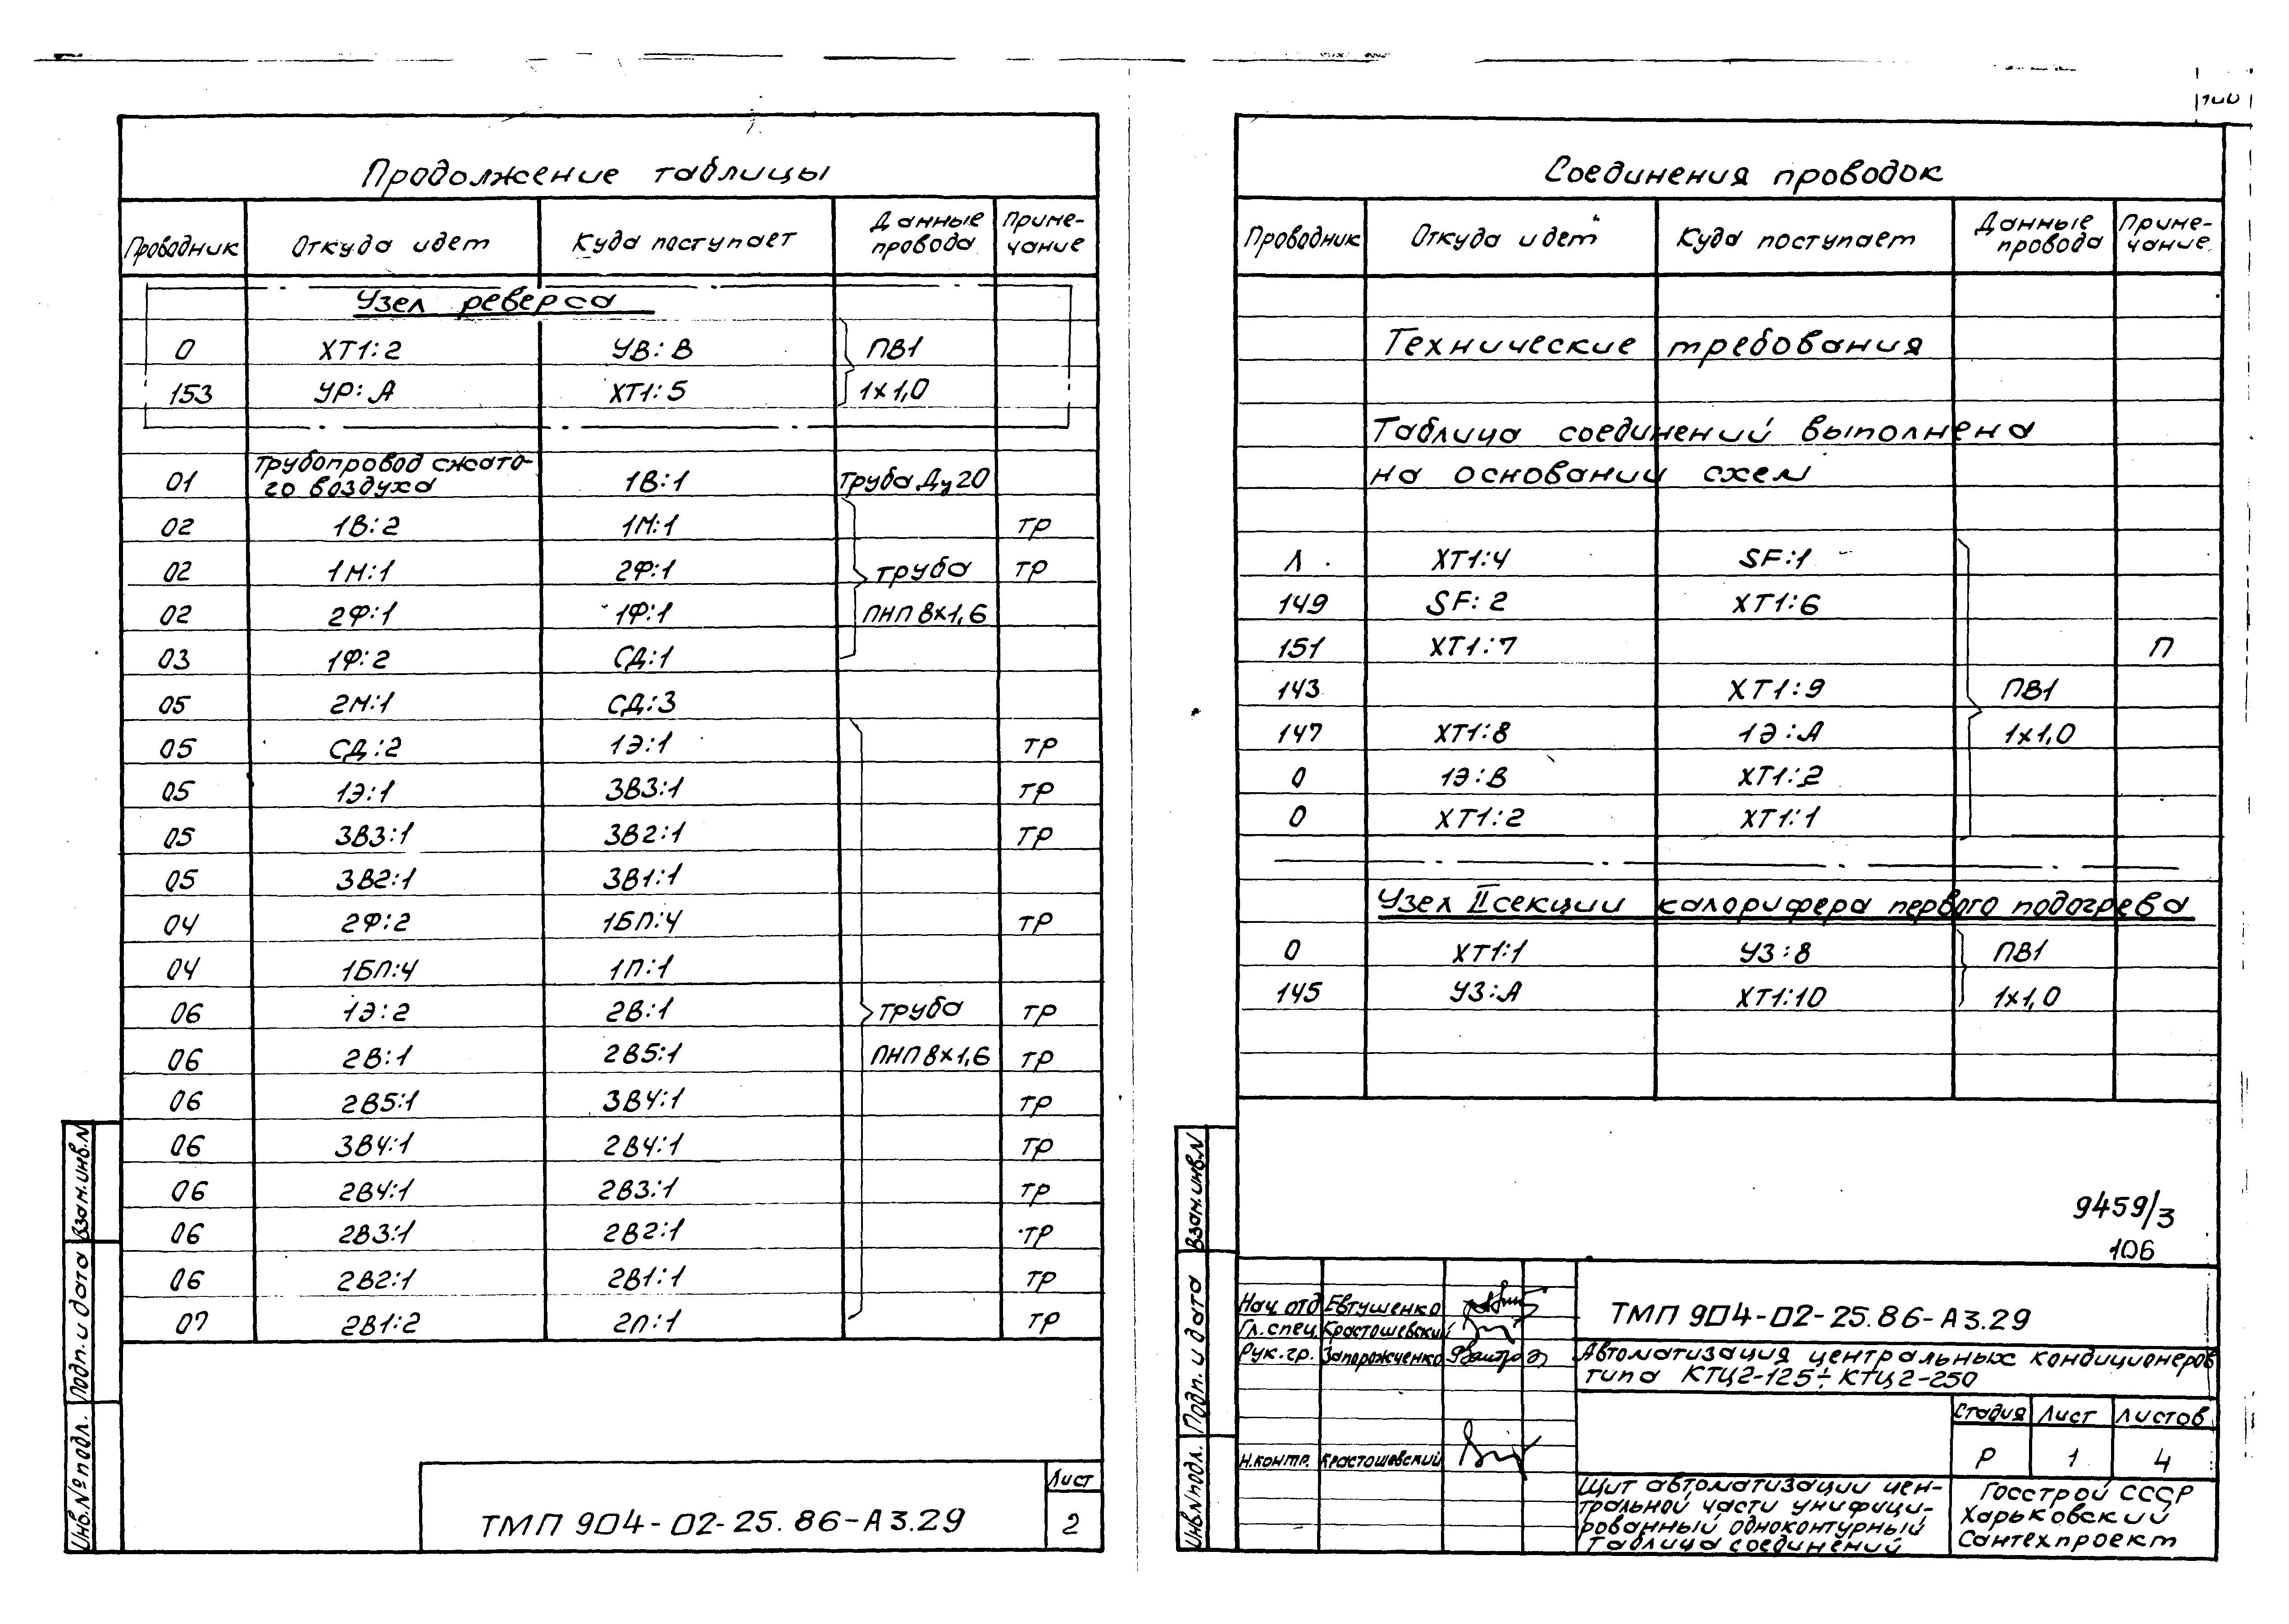 Продолжение таблицы
Проводник Откуда идет Куда поступает Данные провода Приме-чание
Узел реверса
0 ХТ1:2 УВ:В ПВ1
153 УР:А ХТ1:5 1х1,0
01 Трубопровод сжато-го воздуха 1В:1 Труба Ду20
02 1В:2 1М:1 ТР
02 1М:1 2Ф:1 труба ТР
02 2Ф:1 1Ф:1 ПНП 8х1,6
03 1Ф:2 СД:1
05 2М:1 СД:3
05 СД:2 1Э:1 ТР
05 1Э:1 3В3:1 ТР
05 3В3:1 3В2:1 ТР
05 3В2:1 3В1:1
04 2Ф:2 1БП:4 ТР
04 1БП:4 1П:1
06 1Э:2 2В:1 труба ТР
06 2В:1 2В5:1 ПНП 8х1,6 ТР
06 2В5:1 3В4:1 ТР
06 3В4:1 2В4:1 ТР
06 2В4:1 2В3:1 ТР
06 2В3:1 2В2:1 ТР
06 2В2:1 2В1:1 ТР
07 2В1:2 2П:1 ТР
Взам.инв.N
Подп. и дата
Инв.№ подл.
ТМП 904-02-25.86-А3.29
Лист
2
Соединения проводок
Проводник Откуда идет Куда поступает Данные провода Приме-чание
Технические требования
Таблица соединений выполнена
на основании схем
Л ХТ1:4 SF:1
149 SF:2 ХТ1:6
151 ХТ1:7 П
143 ХТ1:9 ПВ1
147 ХТ1:8 1Э:А 1х1,0
0 1Э:В ХТ1:2
0 ХТ1:2 ХТ1:1
Узел II секции калорифера первого подогрева
0 ХТ1:1 У3:8 ПВ1
145 У3:А ХТ1:10 1х1,0
9459/3
106
Взам.инв.N
Подп. и дата
Инв.N подл.
Нач.отд Евтушенко
Гл.спец. Крастошевский
Рук.гр. Запорожченко
Н.контр. Крастошевский
ТМП 904-02-25.86-А3.29
Автоматизация центральных кондиционеров
типа КТЦ2-125÷КТЦ2-250
Стадия Лист Листов
Р 1 4
Щит автоматизации цен-
тральной части унифици-
рованный одноконтурный
Таблица соединений
Госстрой СССР
Харьковский
Сантехпроект